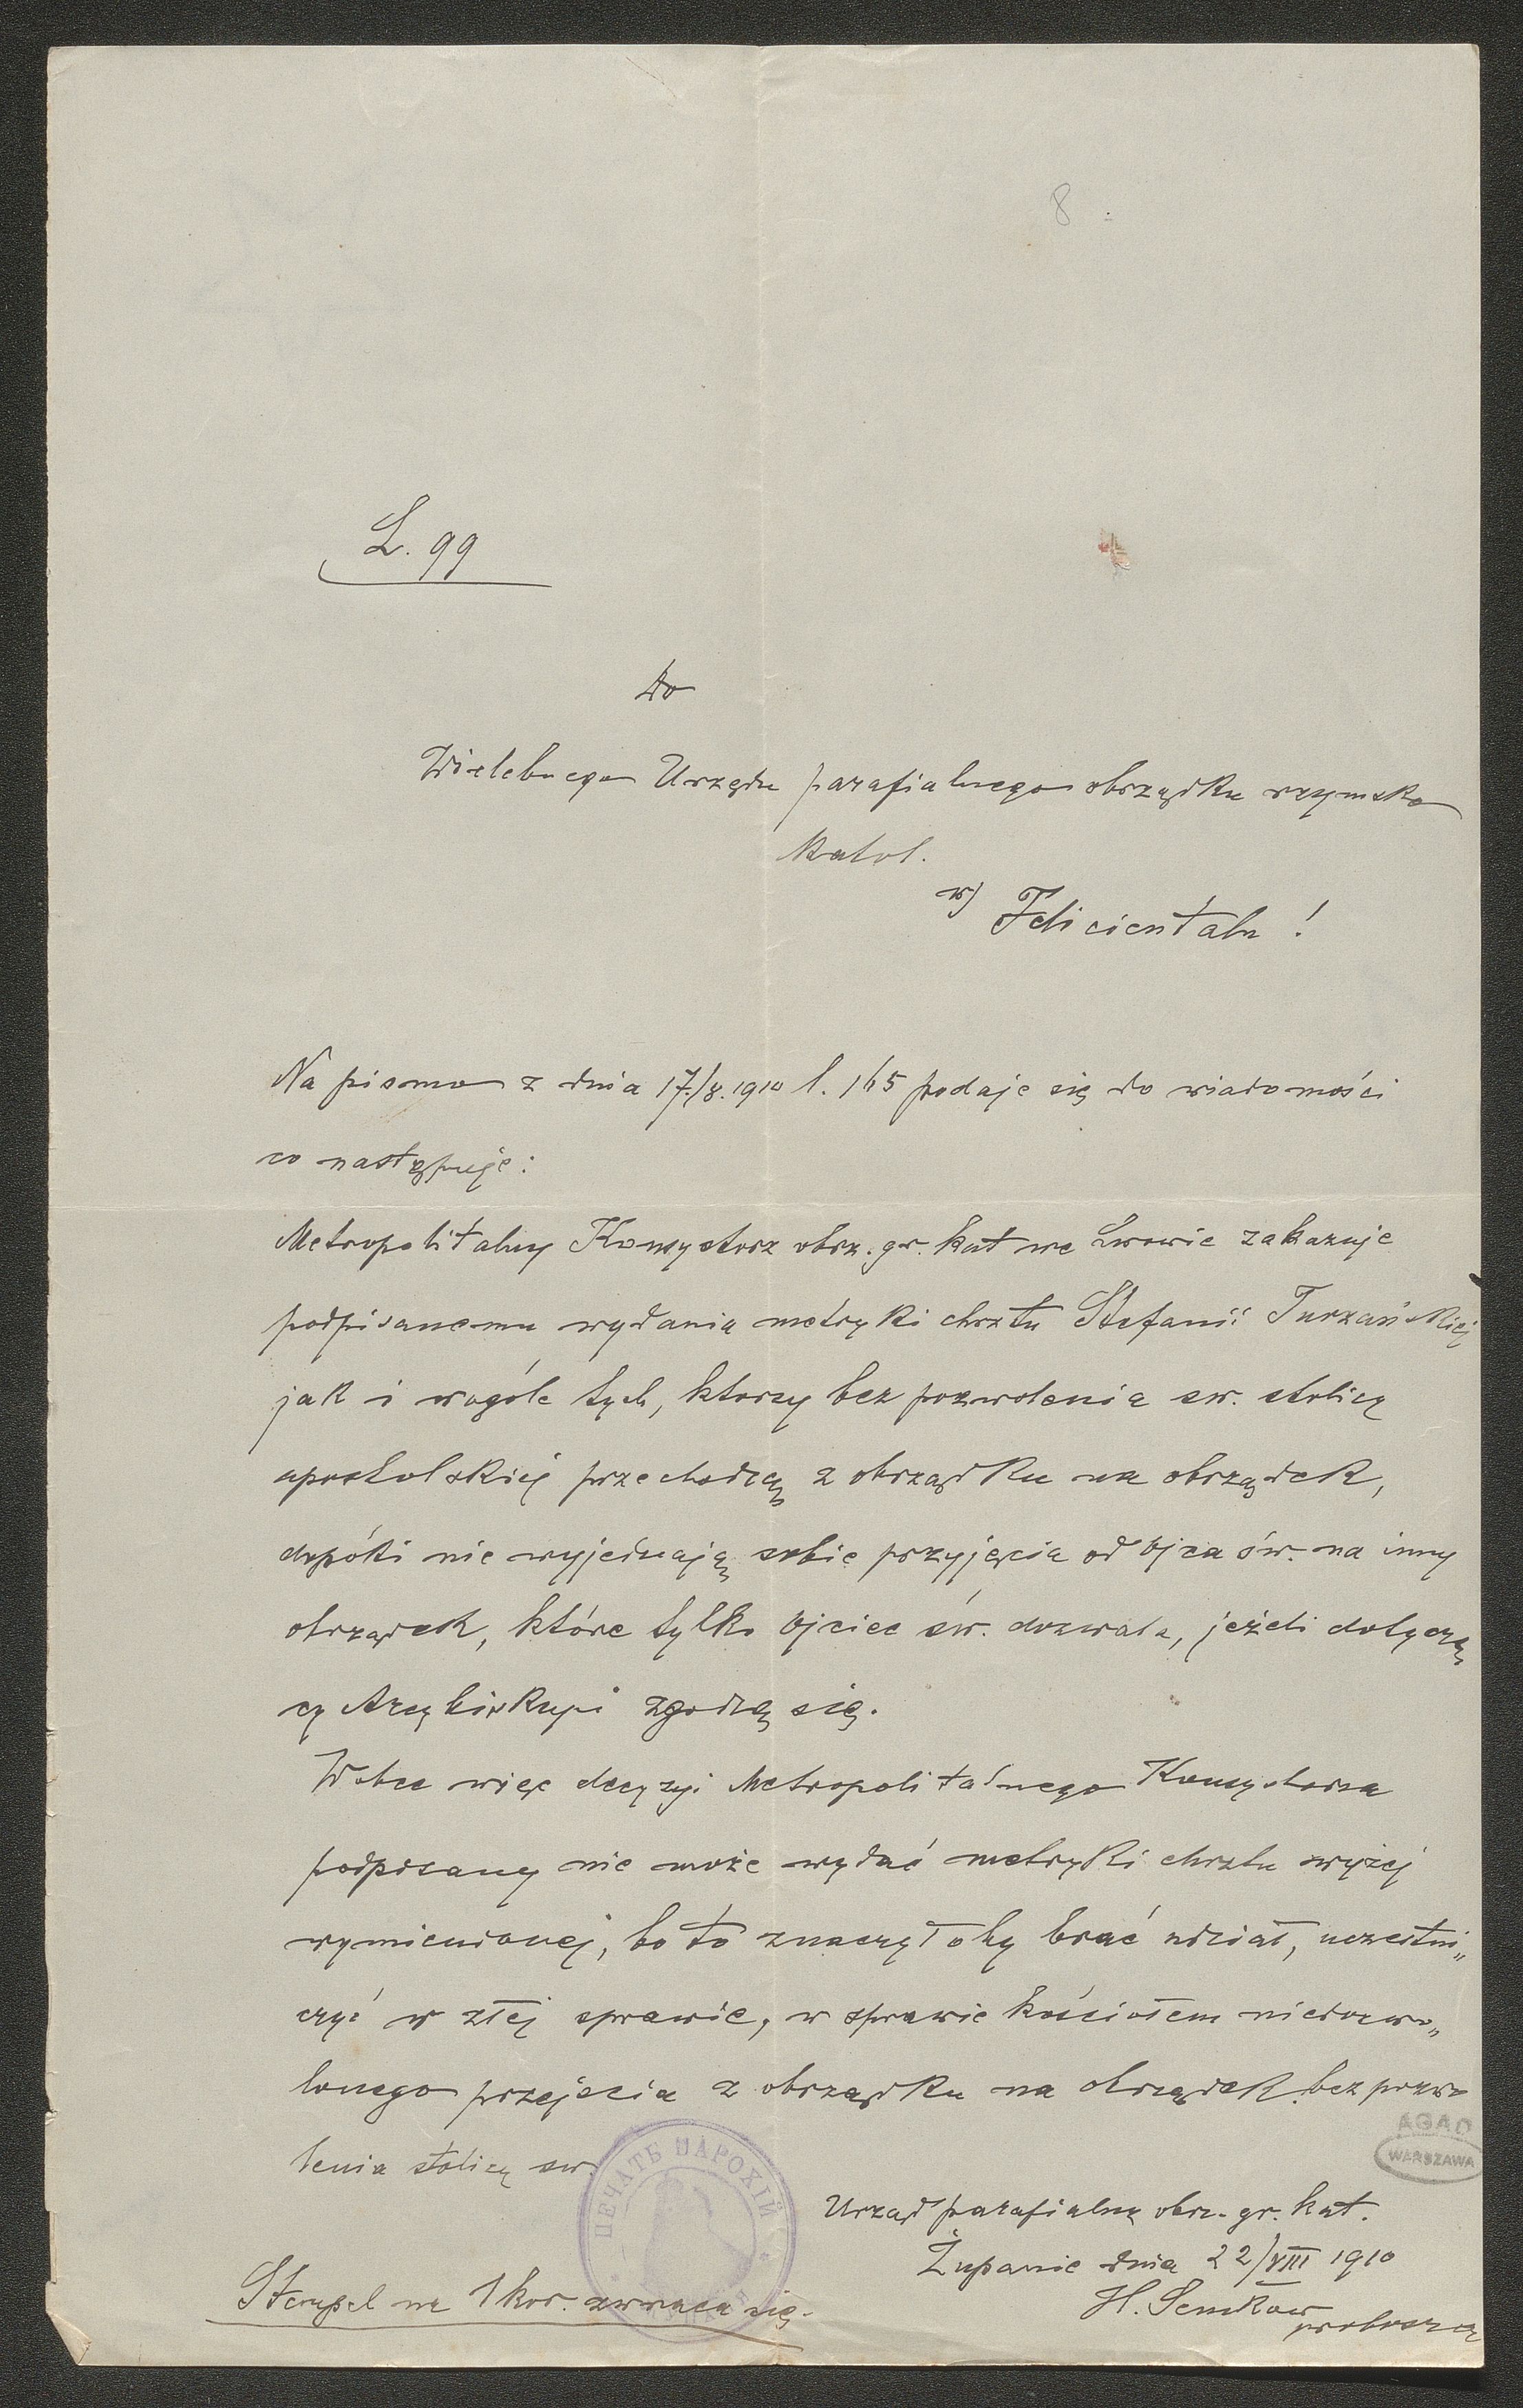 8.
L. 99
Do
Wielebnego Urzędu parafialnego obrządku rzymsko
katol.
w) Felicientalu!
Na pismo z dnia 17./8. 1910 l. 165 podaje się do wiadomości
co następuje:
Metropolitalny Konsystorz obrz. gr. kat we Lwowie zakazuje
podpisanemu wydania metryki chrztu Stefanii Turzańskiej
jak i wogóle tych, ktorzy bez pozwolenia sw. stolicy
apostolskiej przechodzą z obrządku na obrządek,
dopóki nie wyjednają sobie przyjęcia od Ojca św. na inny
obrządek, które tylko Ojciec św. dozwala, jeżeli dotyczą
cy Arcybiskupi zgodzą się.
Wobec więc decyzyi Metropolitalnego Konsystorza
podpisany nie może wydać metryki chrztu wyżej
wymienionej, bo to znaczyłoby brać udział, uczestni„
czyć w złej sprawie, w sprawie kościołem niedozwo„
lonego przejscia z obrządku na obrządek bez pozwo
lenia stolicy sw.
ПЕЧАТЬ ПАРОХІЙ
AGAD
WARSZAWA
Urząd parafialny obrz. gr. kat.
Żupanie dnia 22/VIII 1910
H. Senkow
proboszcz
Stempel na 1 kor. zwraca się.